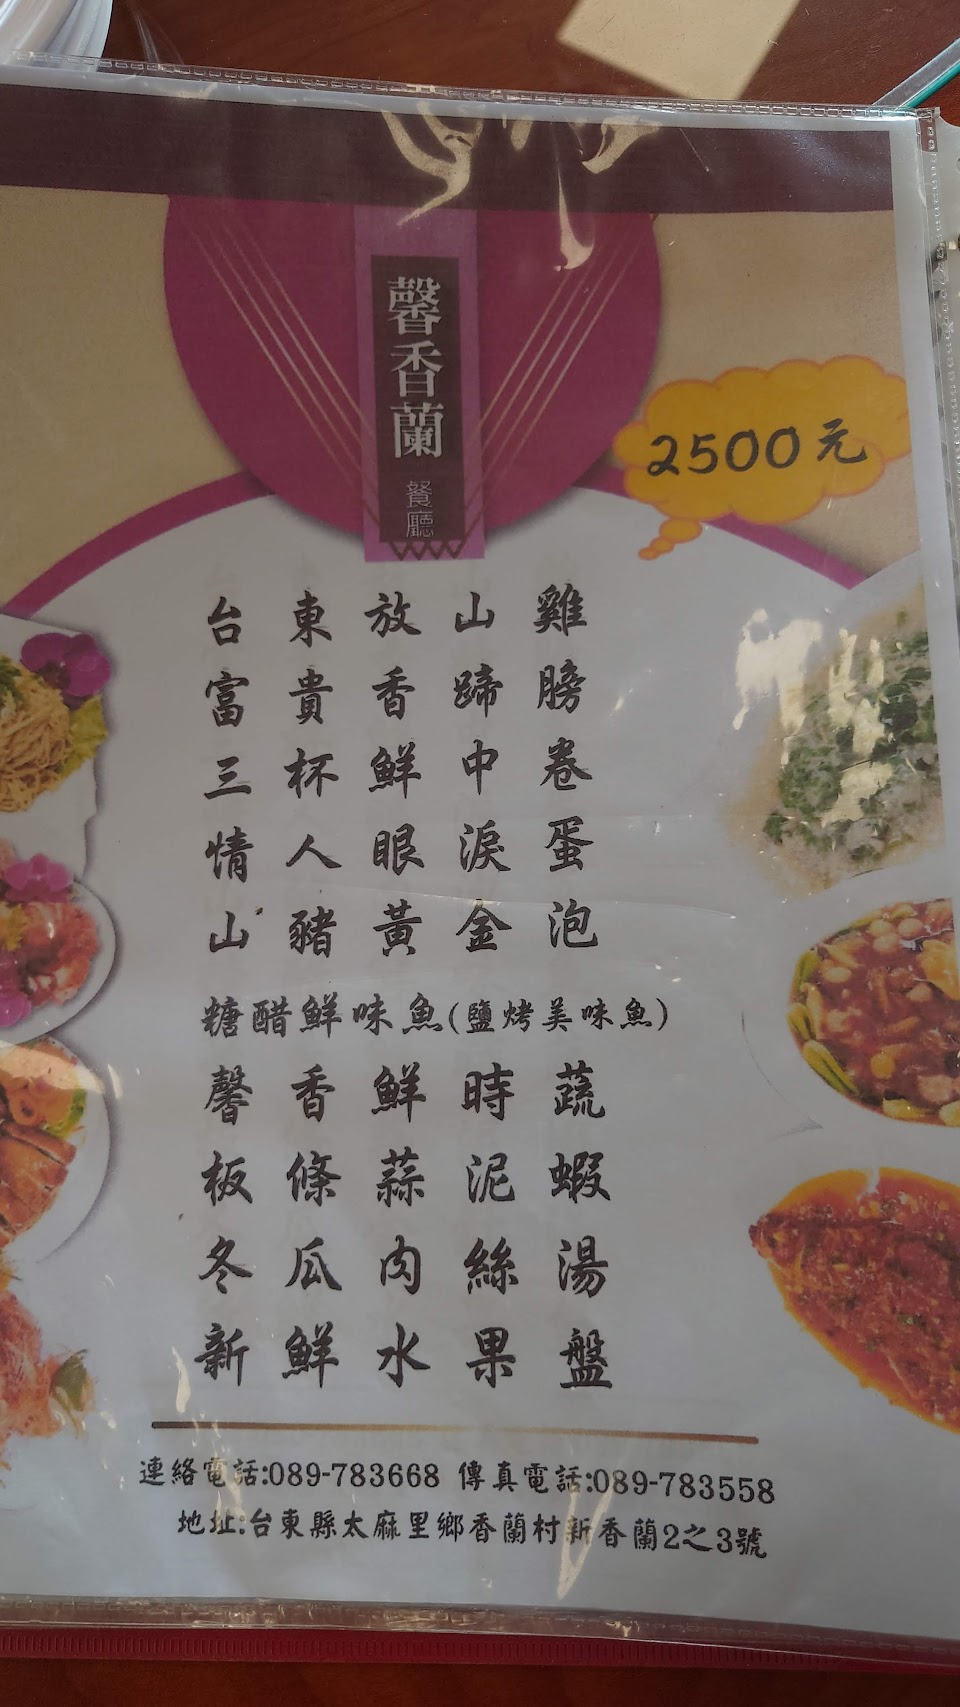 馨香蘭
餐廳
2500元
台東放山雞
富貴香蹄膀
三杯鮮中卷
情人眼淚蛋
山豬黃金泡
糖醋鮮味魚(鹽烤美味魚)
馨香鮮時蔬
板條蒜泥蝦
冬瓜肉絲湯
新鮮水果盤
連絡電話:089-783668 傳真電話:089-783558
地址:台東縣太麻里鄉香蘭村新香蘭2之3號